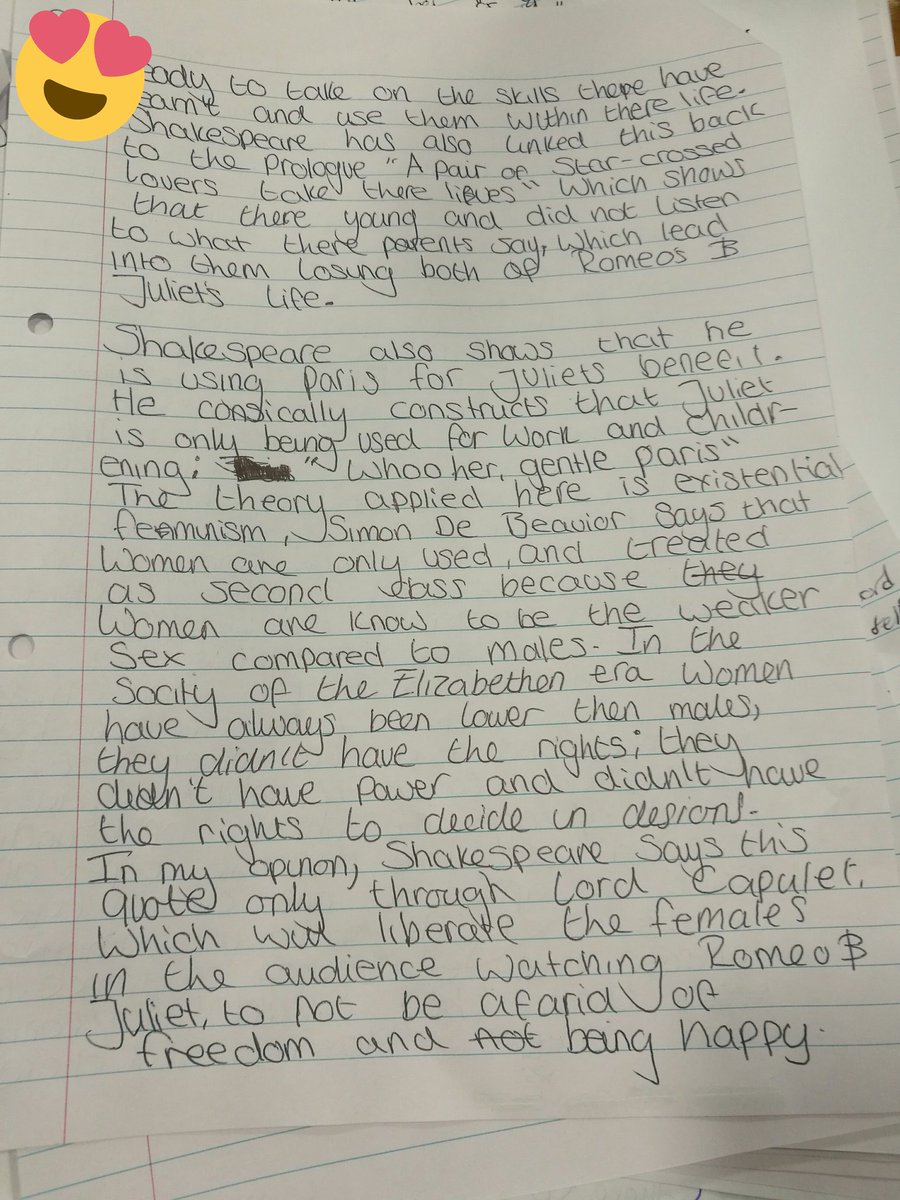 eady to take on the skills there have
earnt and use them within there life.
Shakespeare has also linked this back
to the Prologue "A pair of Star-crossed
lovers take there lieves" which shows
that there young and did not listen
to what there parents say, which lead
into them losing both of Romeo's &
Juliet's life.
Shakespeare also shows that he
is using paris for Juliets benefit.
He consically constructs that Juliet
is only being used for work and childr-
ening: "Whoo her, gentle paris"
The theory applied here is existential
feminism, Simon De Beavior says that
Women are only used, and treated
as second class because they
Women are know to be the weaker
Sex compared to males. In the
Socity of the Elizabethen era women
have always been lower then males,
they didn't have the rights; they
didn't have power and didn't have
the rights to decide in desions.
In my opinon, Shakespeare says this
quote only through Lord Capulet,
Which will liberate the females
in the audience watching Romeo &
Juliet, to not be afarid of
freedom and not being happy.
ord